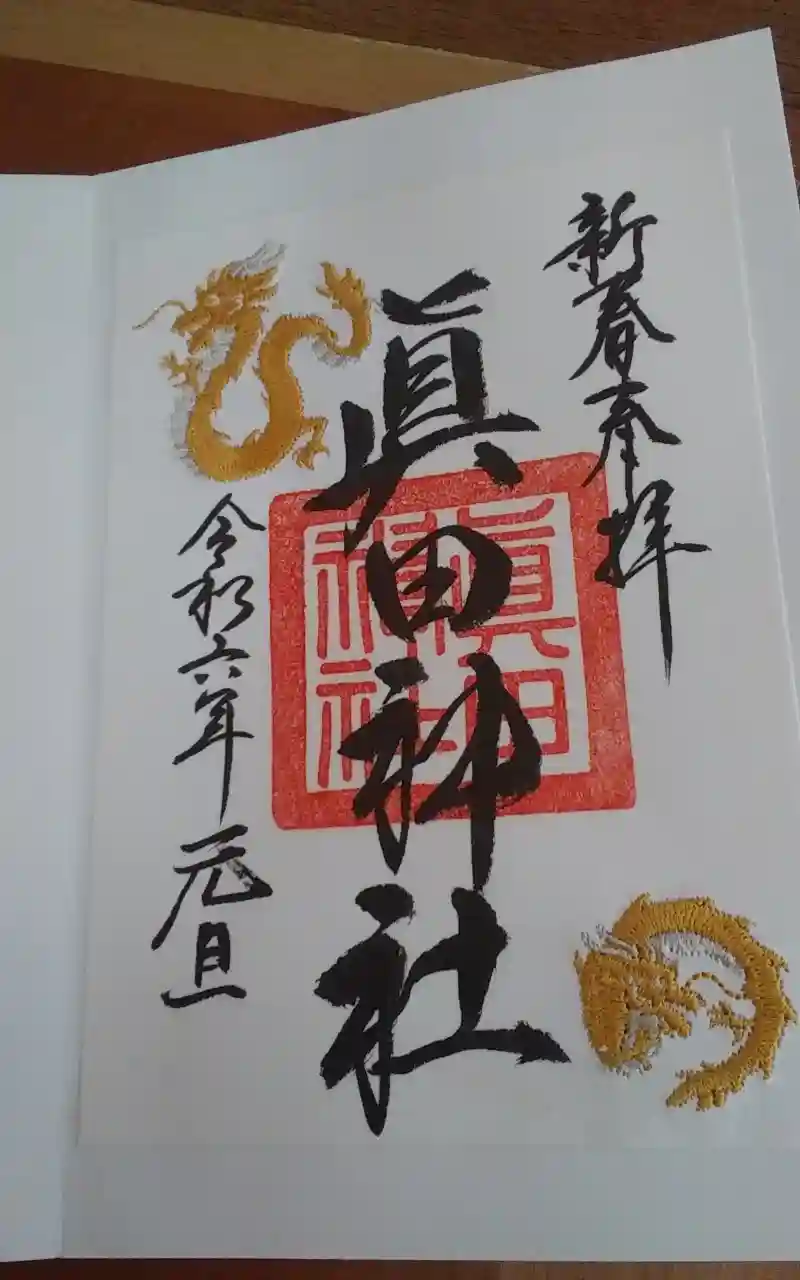 新春奉拝
眞田神社
眞田
神社
令和六年元旦